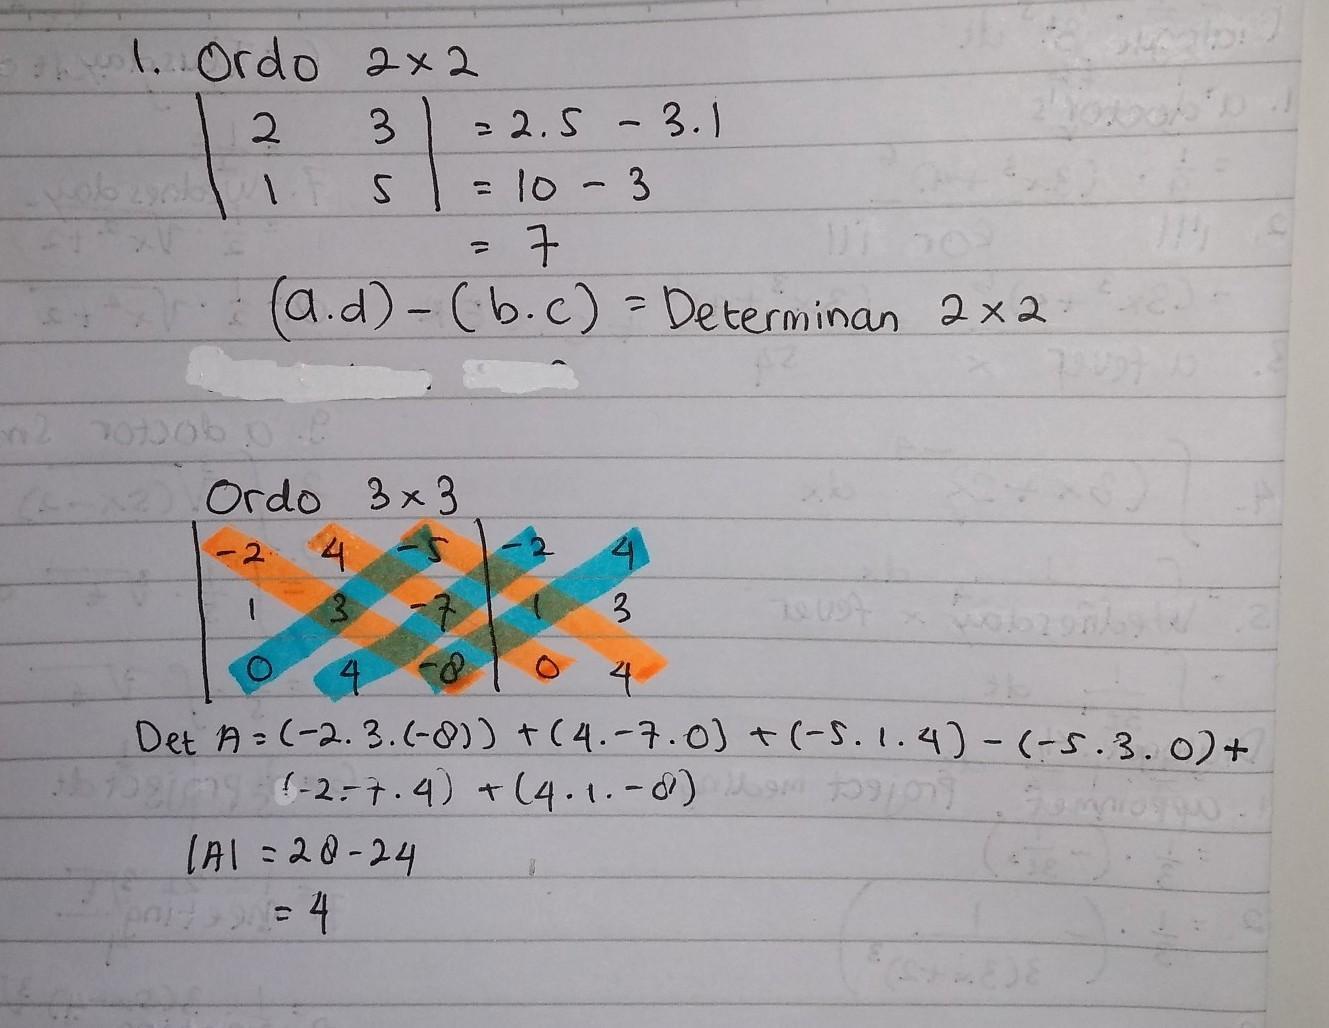 1. Ordo 2×2
| 2 3 | = 2.5 - 3.1
| 1 5 | = 10 - 3
= 7
(a.d) - (b.c) = Determinan 2×2
Ordo 3×3
| -2 4 -5 | -2 4
| 1 3 -7 | 1 3
| 0 4 -8 | 0 4
Det A = (-2.3.(-8)) + (4.-7.0) + (-5.1.4) - (-5.3.0) +
(-2.-7.4) + (4.1.-8)
|A| = 28 - 24
= 4